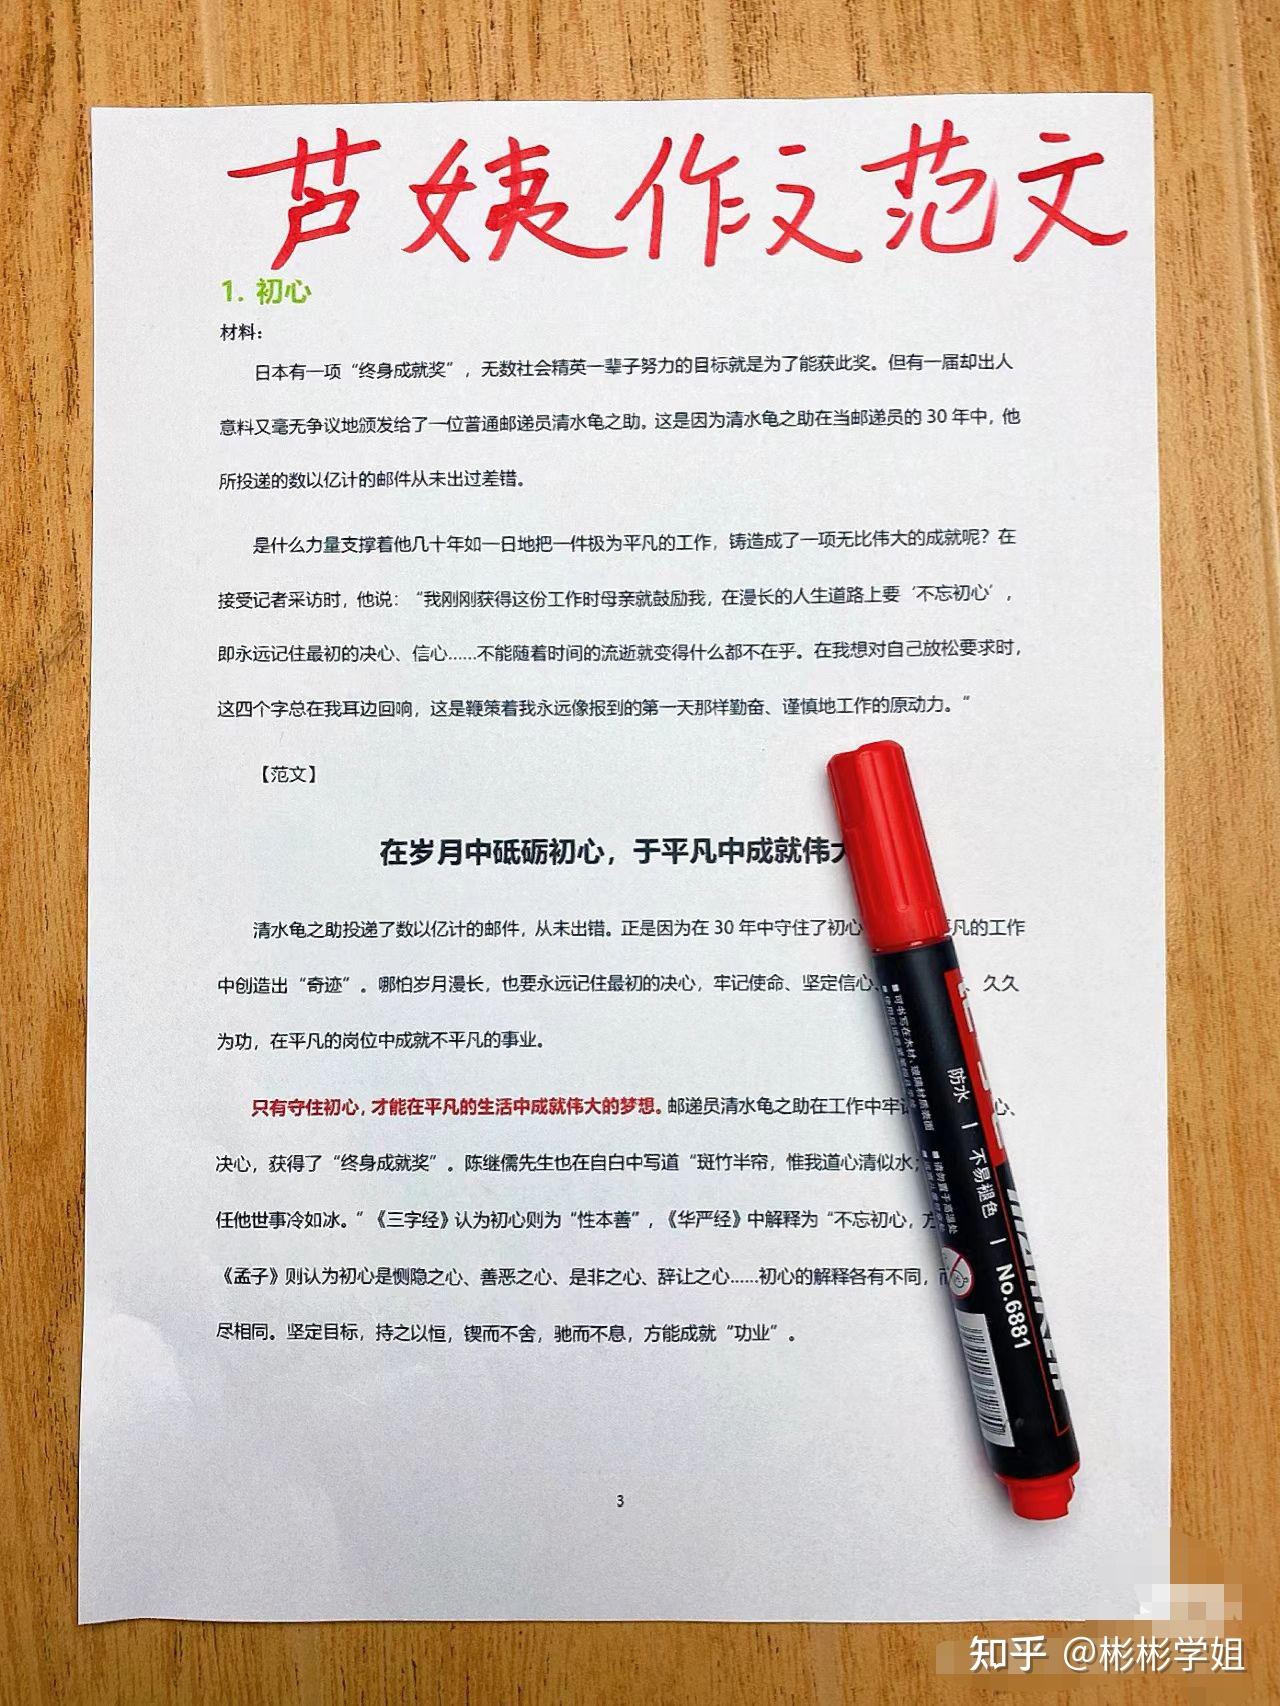 芦姨作文范文
1. 初心
材料：
日本有一项“终身成就奖”，无数社会精英一辈子努力的目标就是为了能获此奖。但有一届却出人
意料又毫无争议地颁发给了一位普通邮递员清水龟之助。这是因为清水龟之助在当邮递员的 30 年中，他
所投递的数以亿计的邮件从未出过差错。
是什么力量支撑着他几十年如一日地把一件极为平凡的工作，铸造成了一项无比伟大的成就呢？在
接受记者采访时，他说：“我刚刚获得这份工作时母亲就鼓励我，在漫长的人生道路上要‘不忘初心’，
即永远记住最初的决心、信心……不能随着时间的流逝就变得什么都不在乎。在我想对自己放松要求时，
这四个字总在我耳边回响，这是鞭策着我永远像报到的第一天那样勤奋、谨慎地工作的原动力。”
【范文】
在岁月中砥砺初心，于平凡中成就伟
清水龟之助投递了数以亿计的邮件，从未出错。正是因为在 30 年中守住了初心 凡的工作
中创造出“奇迹”。哪怕岁月漫长，也要永远记住最初的决心，牢记使命、坚定信心、 久久
为功，在平凡的岗位中成就不平凡的事业。
只有守住初心，才能在平凡的生活中成就伟大的梦想。邮递员清水龟之助在工作中牢 心、
决心，获得了“终身成就奖”。陈继儒先生也在自白中写道“斑竹半帘，惟我道心清似水；
任他世事冷如冰。”《三字经》认为初心则为“性本善”，《华严经》中解释为“不忘初心，
《孟子》则认为初心是恻隐之心、善恶之心、是非之心、辞让之心……初心的解释各有不同，
尽相同。坚定目标，持之以恒，锲而不舍，驰而不息，方能成就“功业”。
可书写在木材、玻璃材质表面
防水 | 不易褪色 | No.6881
MARKER
3
知乎 @彬彬学姐